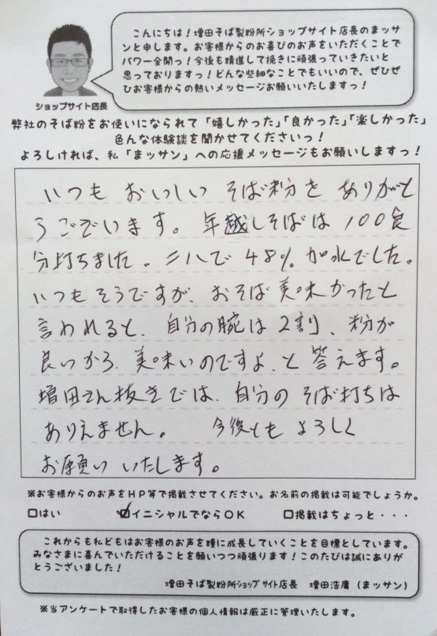 こんにちは！増田そば製粉所ショップサイト店長のマッサ
ンと申します。お客様からのお喜びのお声をいただくことで
パワー全開っ！今後も精進して挽きに頑張っていきたいと
思っておりますっ！どんな些細なことでもいいので、ぜひぜ
ひお客様からの熱いメッセージお願いいたしますっ！
ショップサイト店長
弊社のそば粉をお使いになられて「嬉しかった」「良かった」「楽しかった」
色んな体験談を聞かせてくださいっ！
よろしければ、私「マッサン」への応援メッセージもお願いしますっ！
いつも おいしい そば粉を ありがと
うございます。年越しそばは 100食
分打ちました。二八で 48% 加水でした。
いつもそうですが、おそば美味かったと
言われると、自分の腕は2割、粉が
良いから、美味いのですよ、と 答えます。
増田さん抜きでは、自分の そば打ちは
ありえません。 今後とも よろしく
お願い いたします。
※お客様からのお声をHP等で掲載させてください。お名前の掲載は可能でしょうか。
□はい ☑イニシャルでならOK □掲載はちょっと・・・
これからも私どもはお客様のお声を糧に成長していくことを目標としています。
みなさまに喜んでいただけることを願いつつ頑張ります！このたびは誠にありが
とうございました！
増田そば製粉所ショップサイト店長 増田浩庸（マッサン）
※当アンケートで取得したお客様の個人情報は厳正に管理いたします。